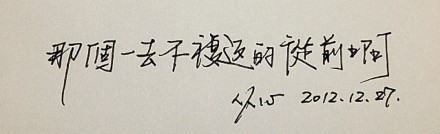 那個一去不複返的從前啊
2012.12.27.